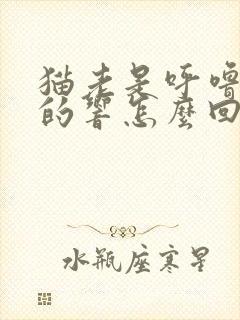 猫老是呼嚕
的響怎麼回
水瓶座寒星